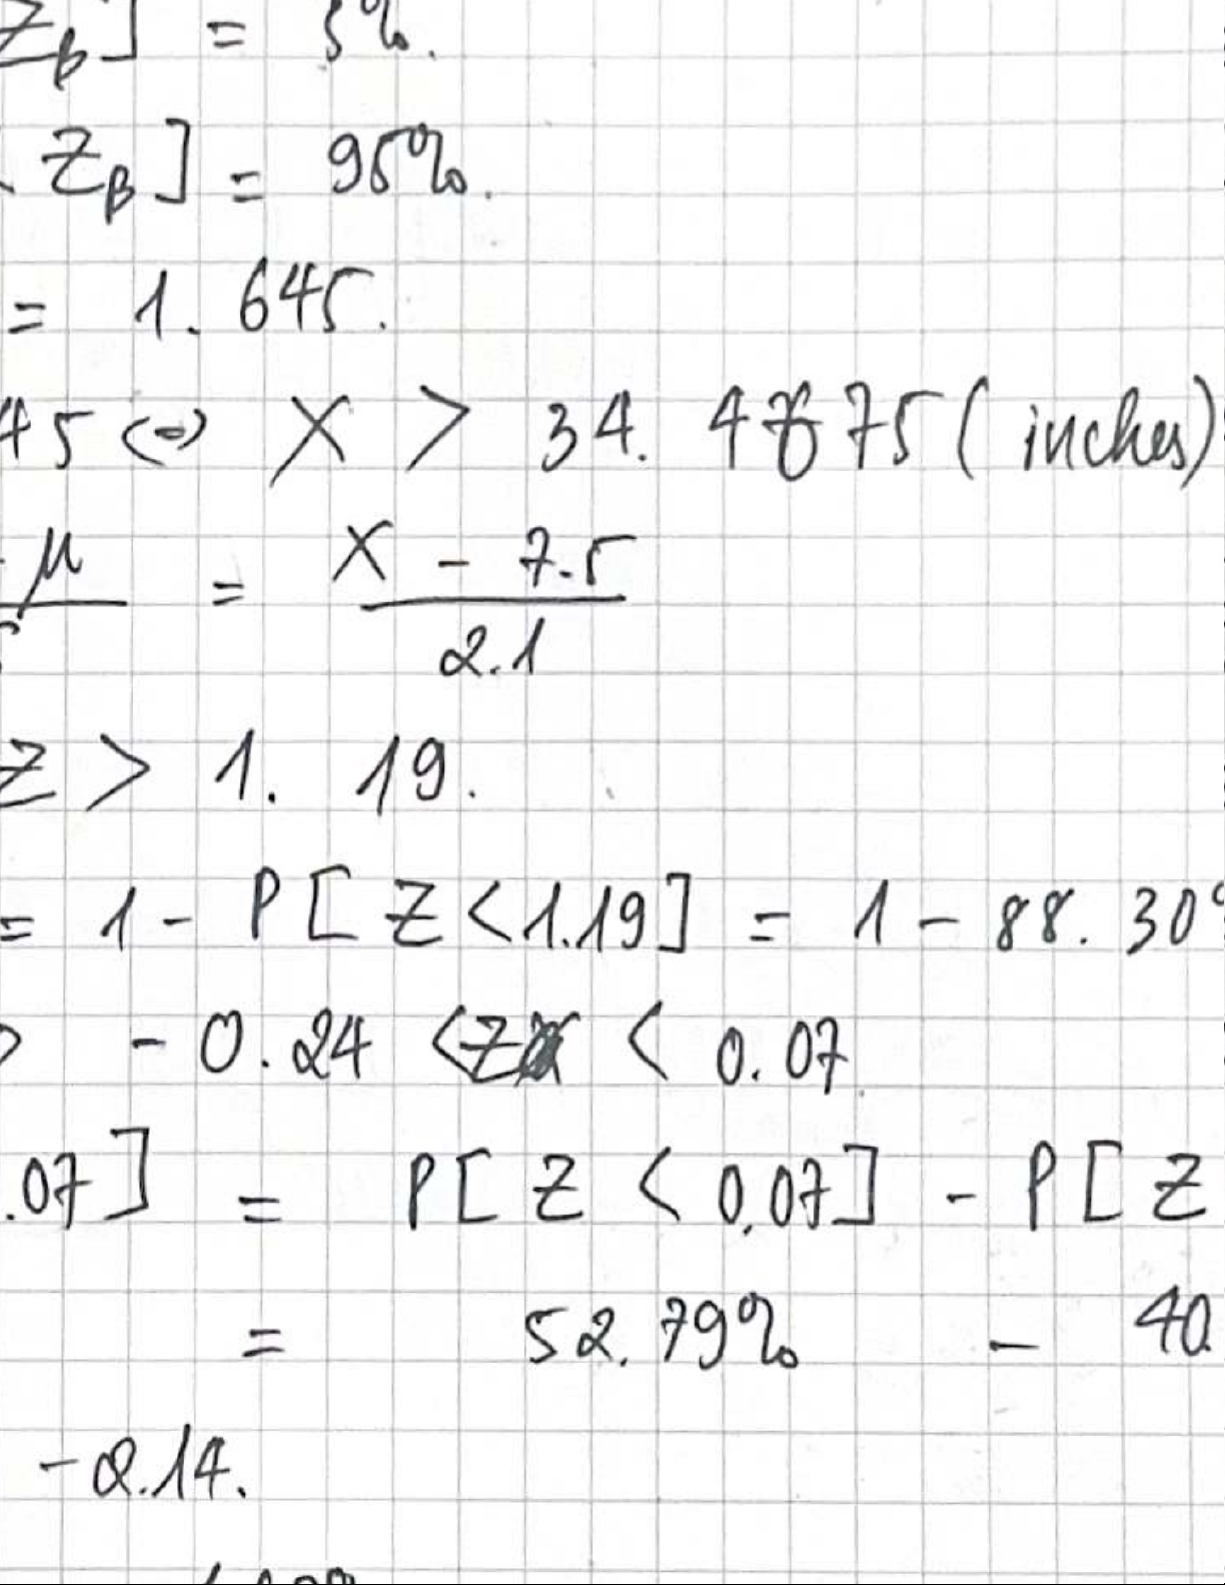 Z_B] = 5%.
Z_B] = 95%.
= 1.645.
45 <=> X > 34.4675 (inches)
μ = X - 7.5
2.1
Z > 1.19.
= 1 - P[Z < 1.19] = 1 - 88.30%
-0.24 < Z < 0.07
.07] = P[Z < 0.07] - P[Z
= 52.79% - 40.
-2.14.